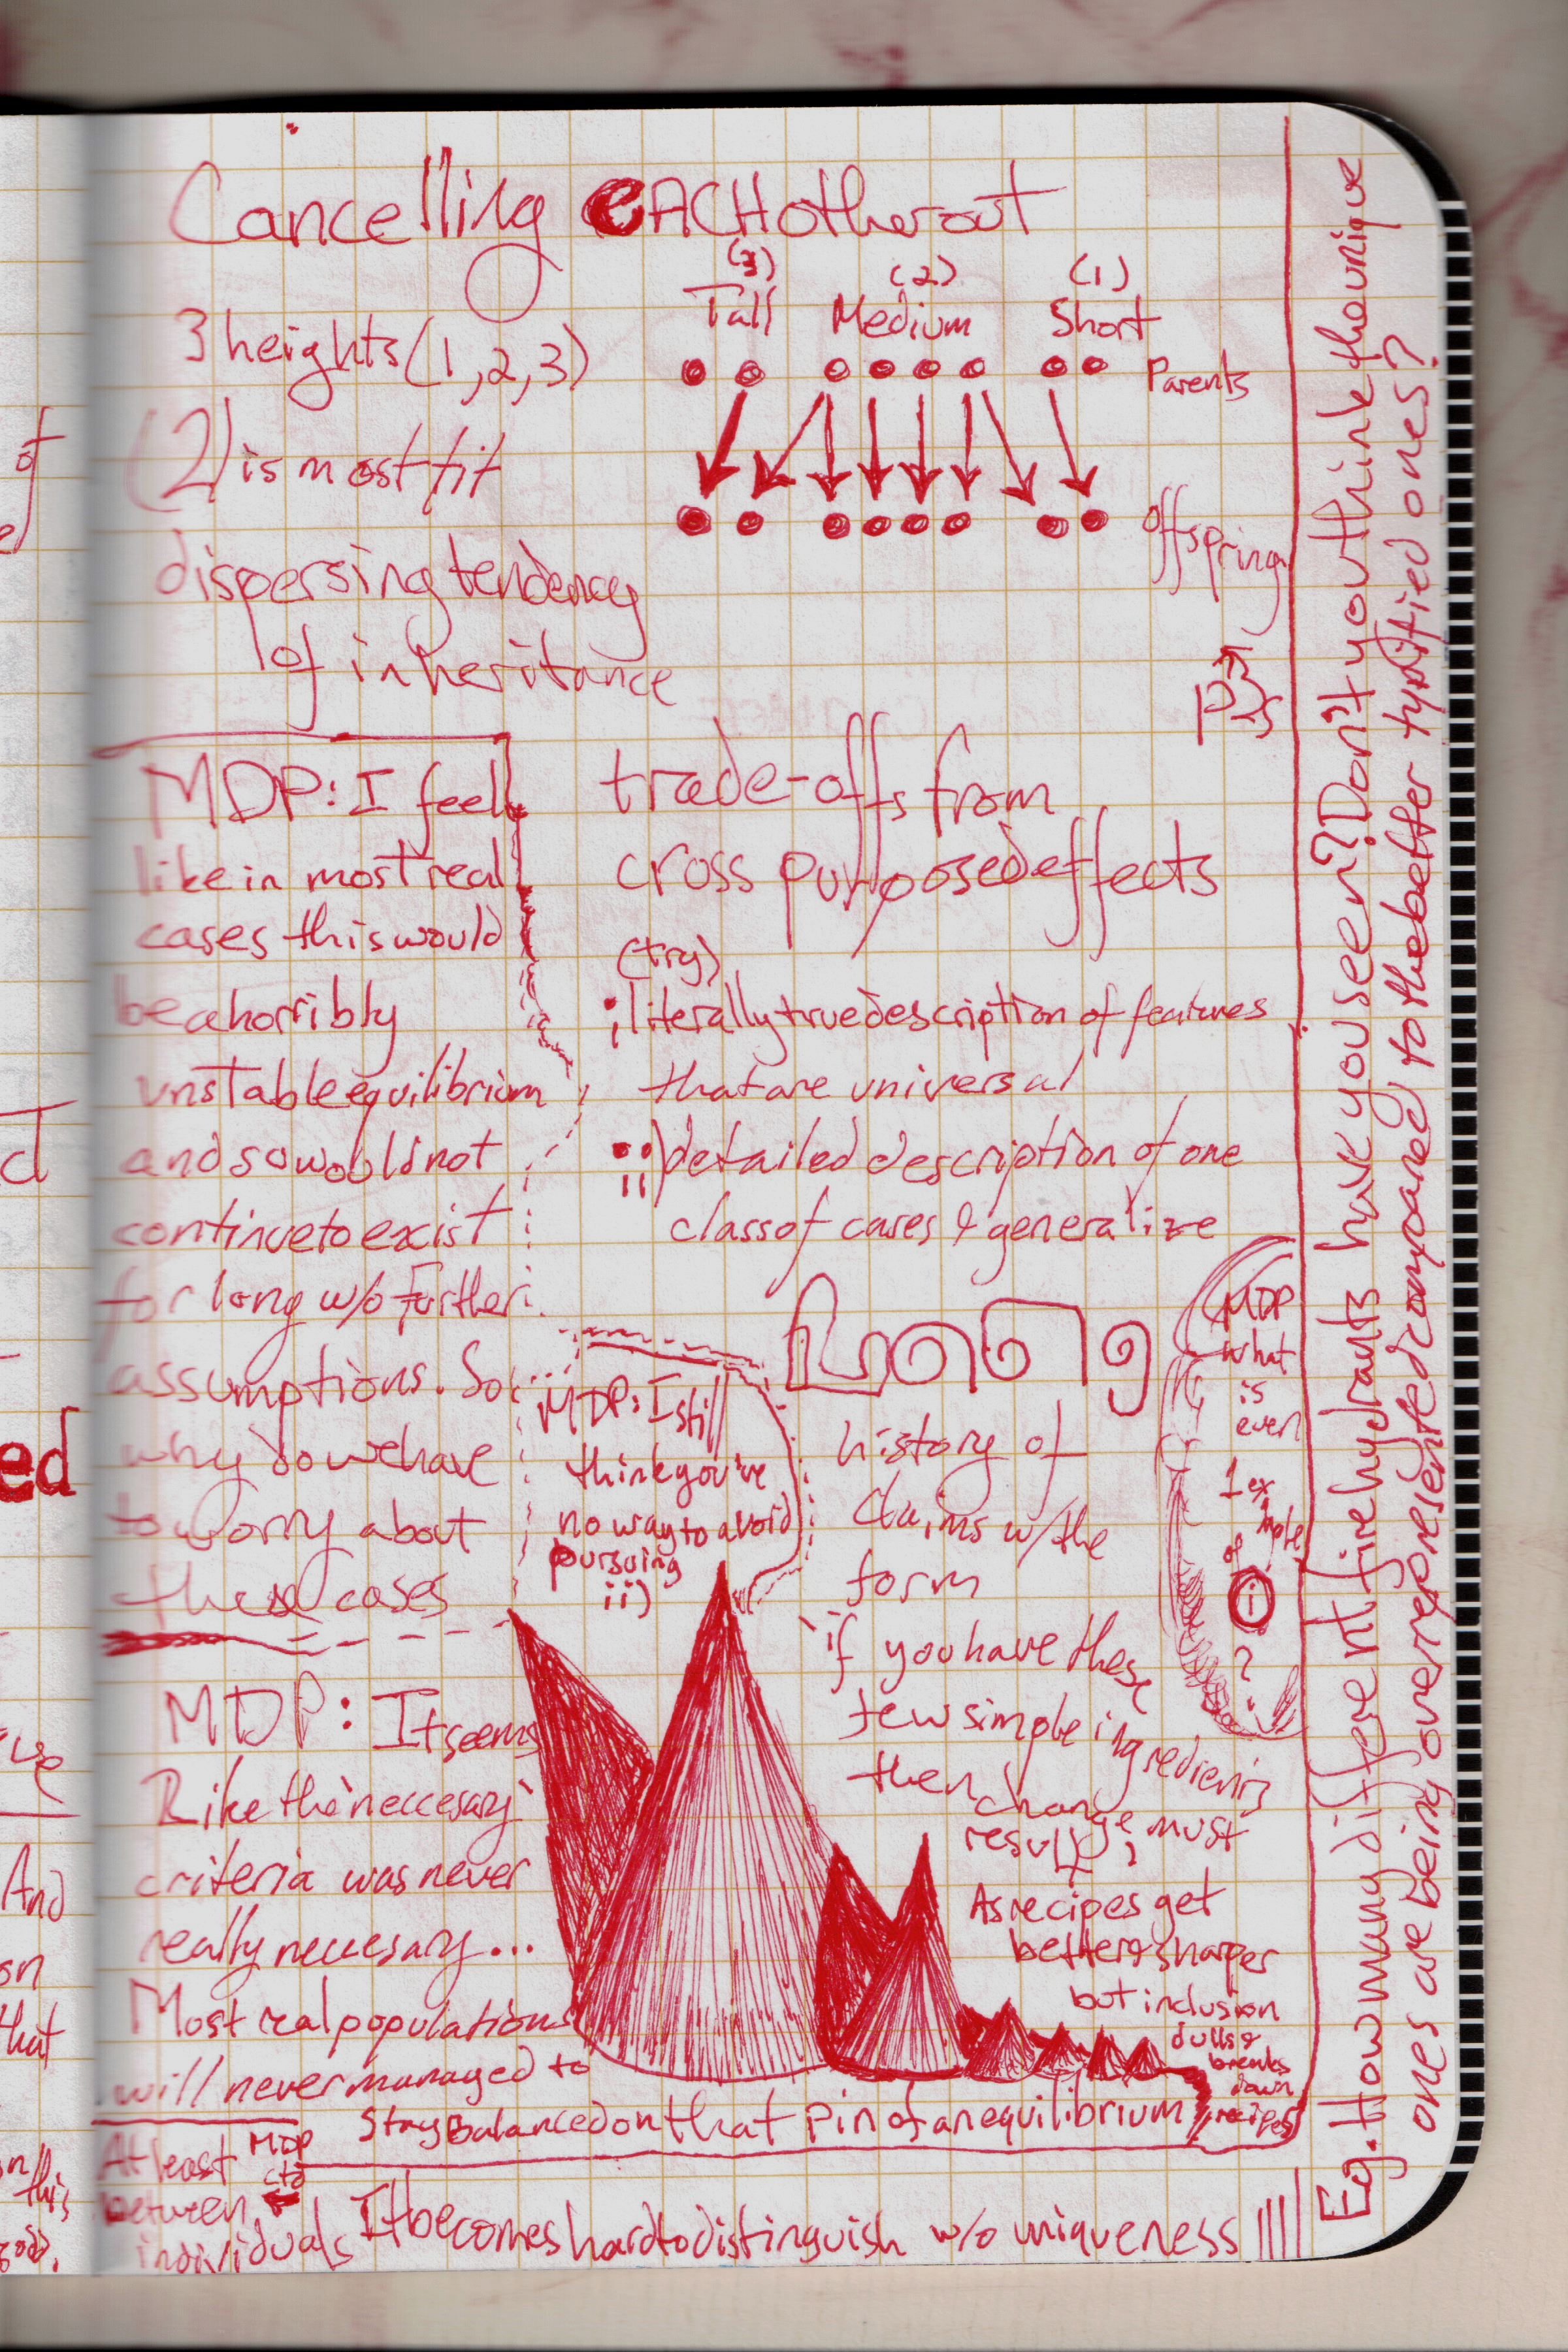 Cancelling eACH other out
3 heights (1,2,3)
(2) is most fit
dispersing tendency
of inheritance
(3) (2) (1)
Tall Medium Short
Parents
offspring
MDP: I feel
like in most real
cases this would
be a horribly
unstable equilibrium
and so would not
continue to exist
for long w/o Further
assumptions. So
why do we have
to worry about
these cases
trade-offs from
cross purposed effects
(try)
i) literally true description of features
that are universal
ii) detailed description of one
class of cases & generalize
MDP: I still
think you've
no way to avoid
pursuing
ii)
history of
claims w/ the
form
'if you have these
few simple ingredients
then change must
result;
As recipes get
better & sharper
but inclusion
dulls &
breaks
down
recipes
MDP
what
is
even
1 ex
ample
of
i
?
MDP: It seems
like the 'neccesary'
criteria was never
really neccesary...
Most real populations
will never managed to
stay balanced on that pin of an equilibrium
At least
between
individuals
MDP
ctd
It becomes hard to distinguish w/o uniqueness
Eg. How many different fire hydrants have you seen? Don't you think the unique
ones are being overrepresented compared to the better typified ones?
of
ed
And
on
that